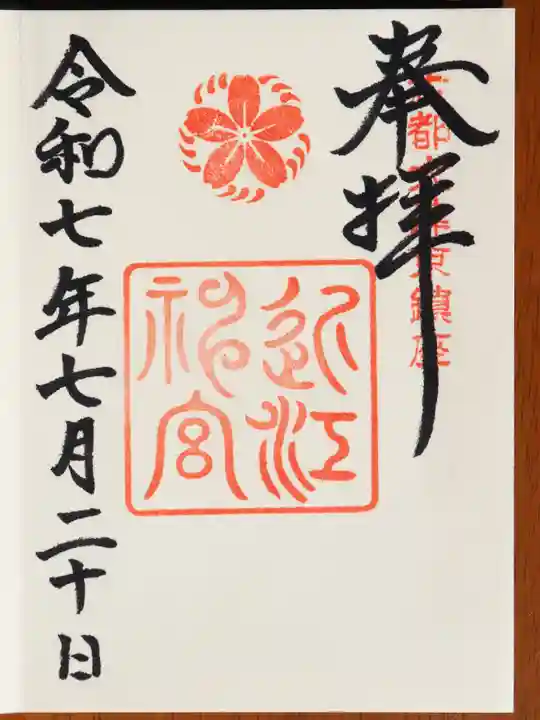 奉拝
都
鎮座
近江
神宮
令和七年七月二十日